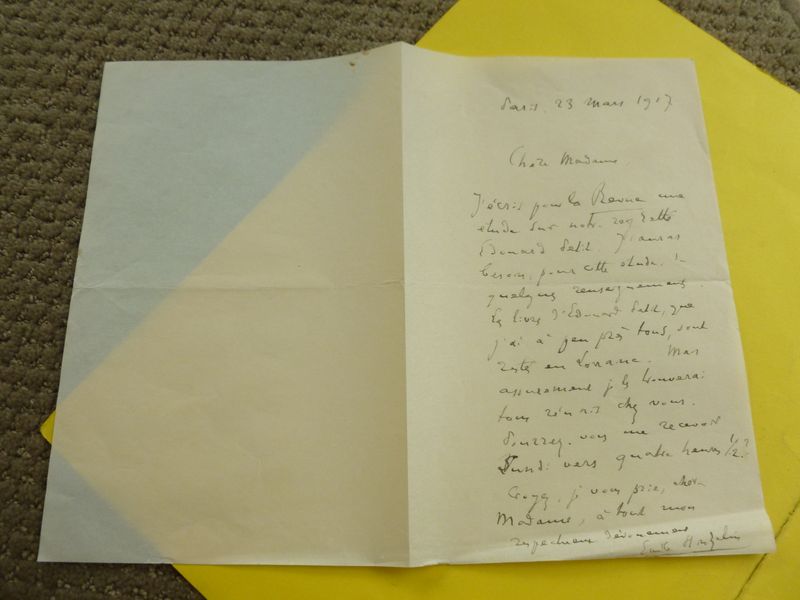 Paris, 23 mars 1917
Chère Madame
J'écris pour la Revue une
étude sur notre regretté
Edouard Petit. J'aurais
besoin, pour cette étude, de
quelques renseignements.
Les livres d'Edouard Petit, que
j'ai à peu près tous, sont
restés en Lorraine. Mais
assurément je les trouverai
tous réunis chez vous.
Pourrez-vous me recevoir
Lundi vers quatre heures 1/2 ?
Croyez, je vous prie, chère
Madame, à tout mon
respectueux dévouement
Emile Hinzelin